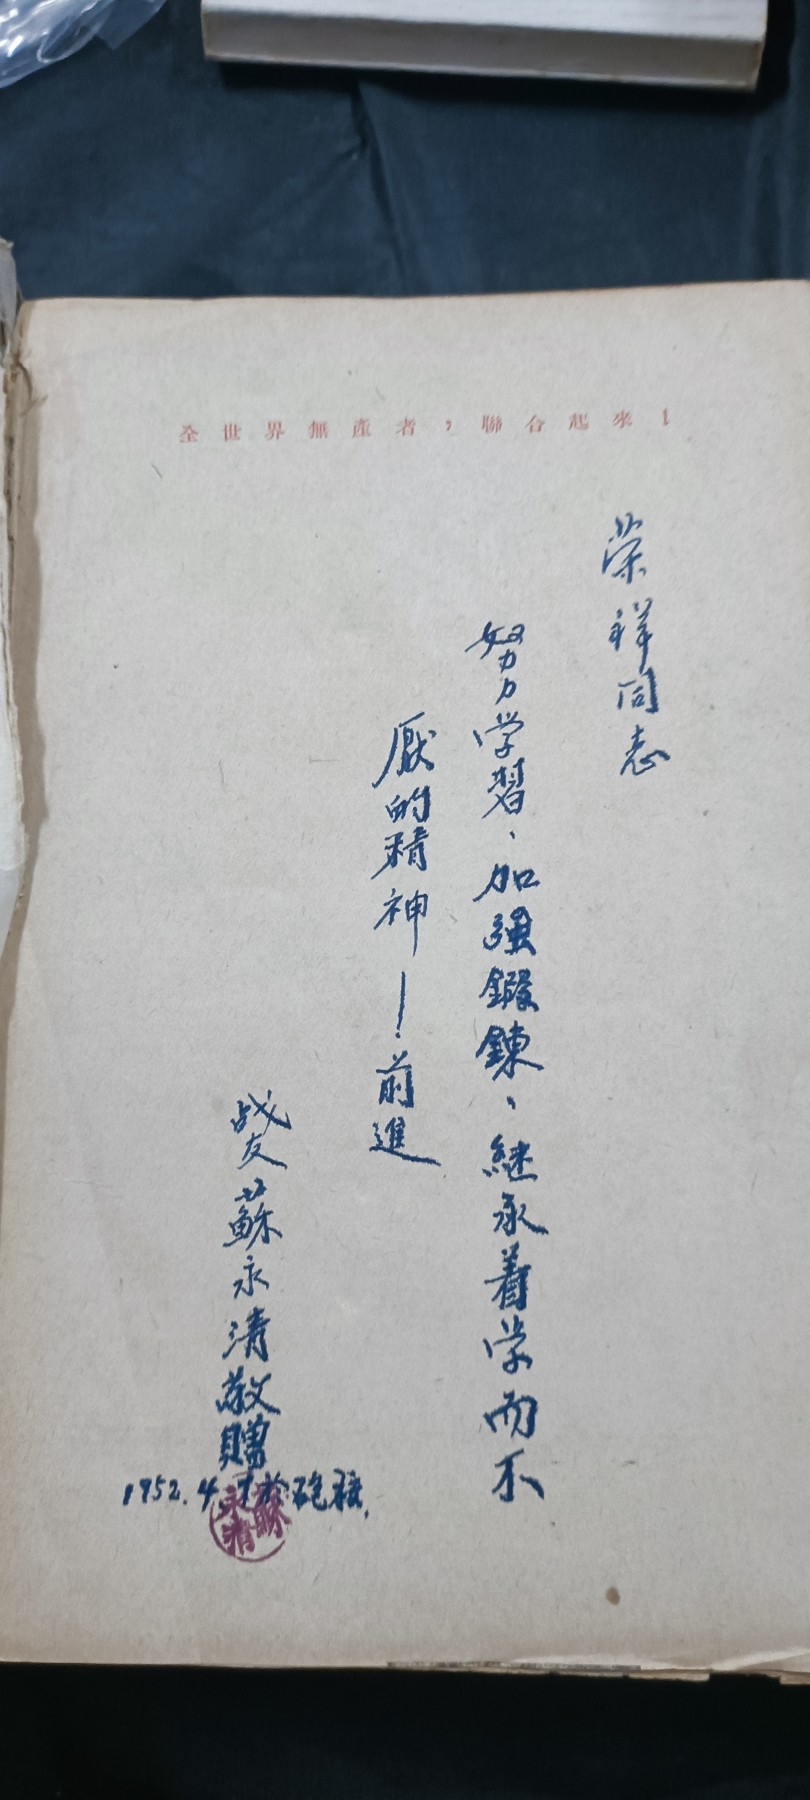 全世界無產者，聯合起來！
荣祥同志
努力学習、加强鍛鍊、継承着学而不
厭的精神—！前進
战友蘇永清敬贈
1952.4.于砲校.
蘇永清